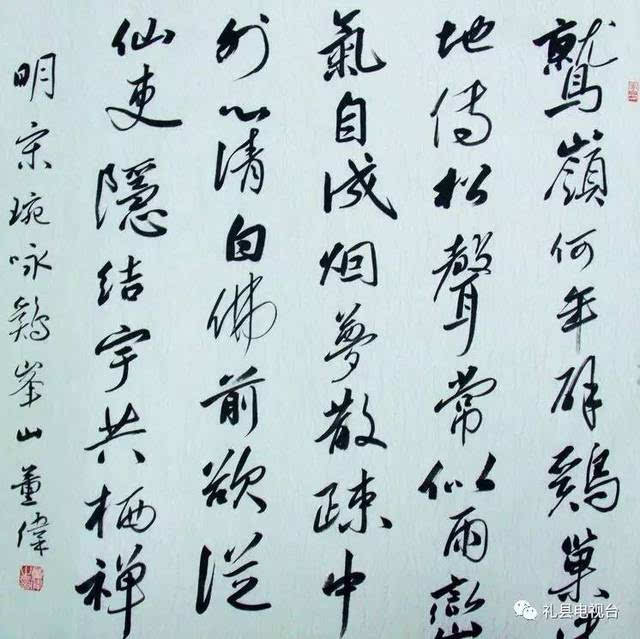 鷲嶺何年辟鷄巢
地傳松聲常似雨嶽
氣自成烟夢散疎中
外心清自佛前欲從
仙吏隱結宇共栖禪
明宋琬咏鷄峯山董偉
礼县电视台